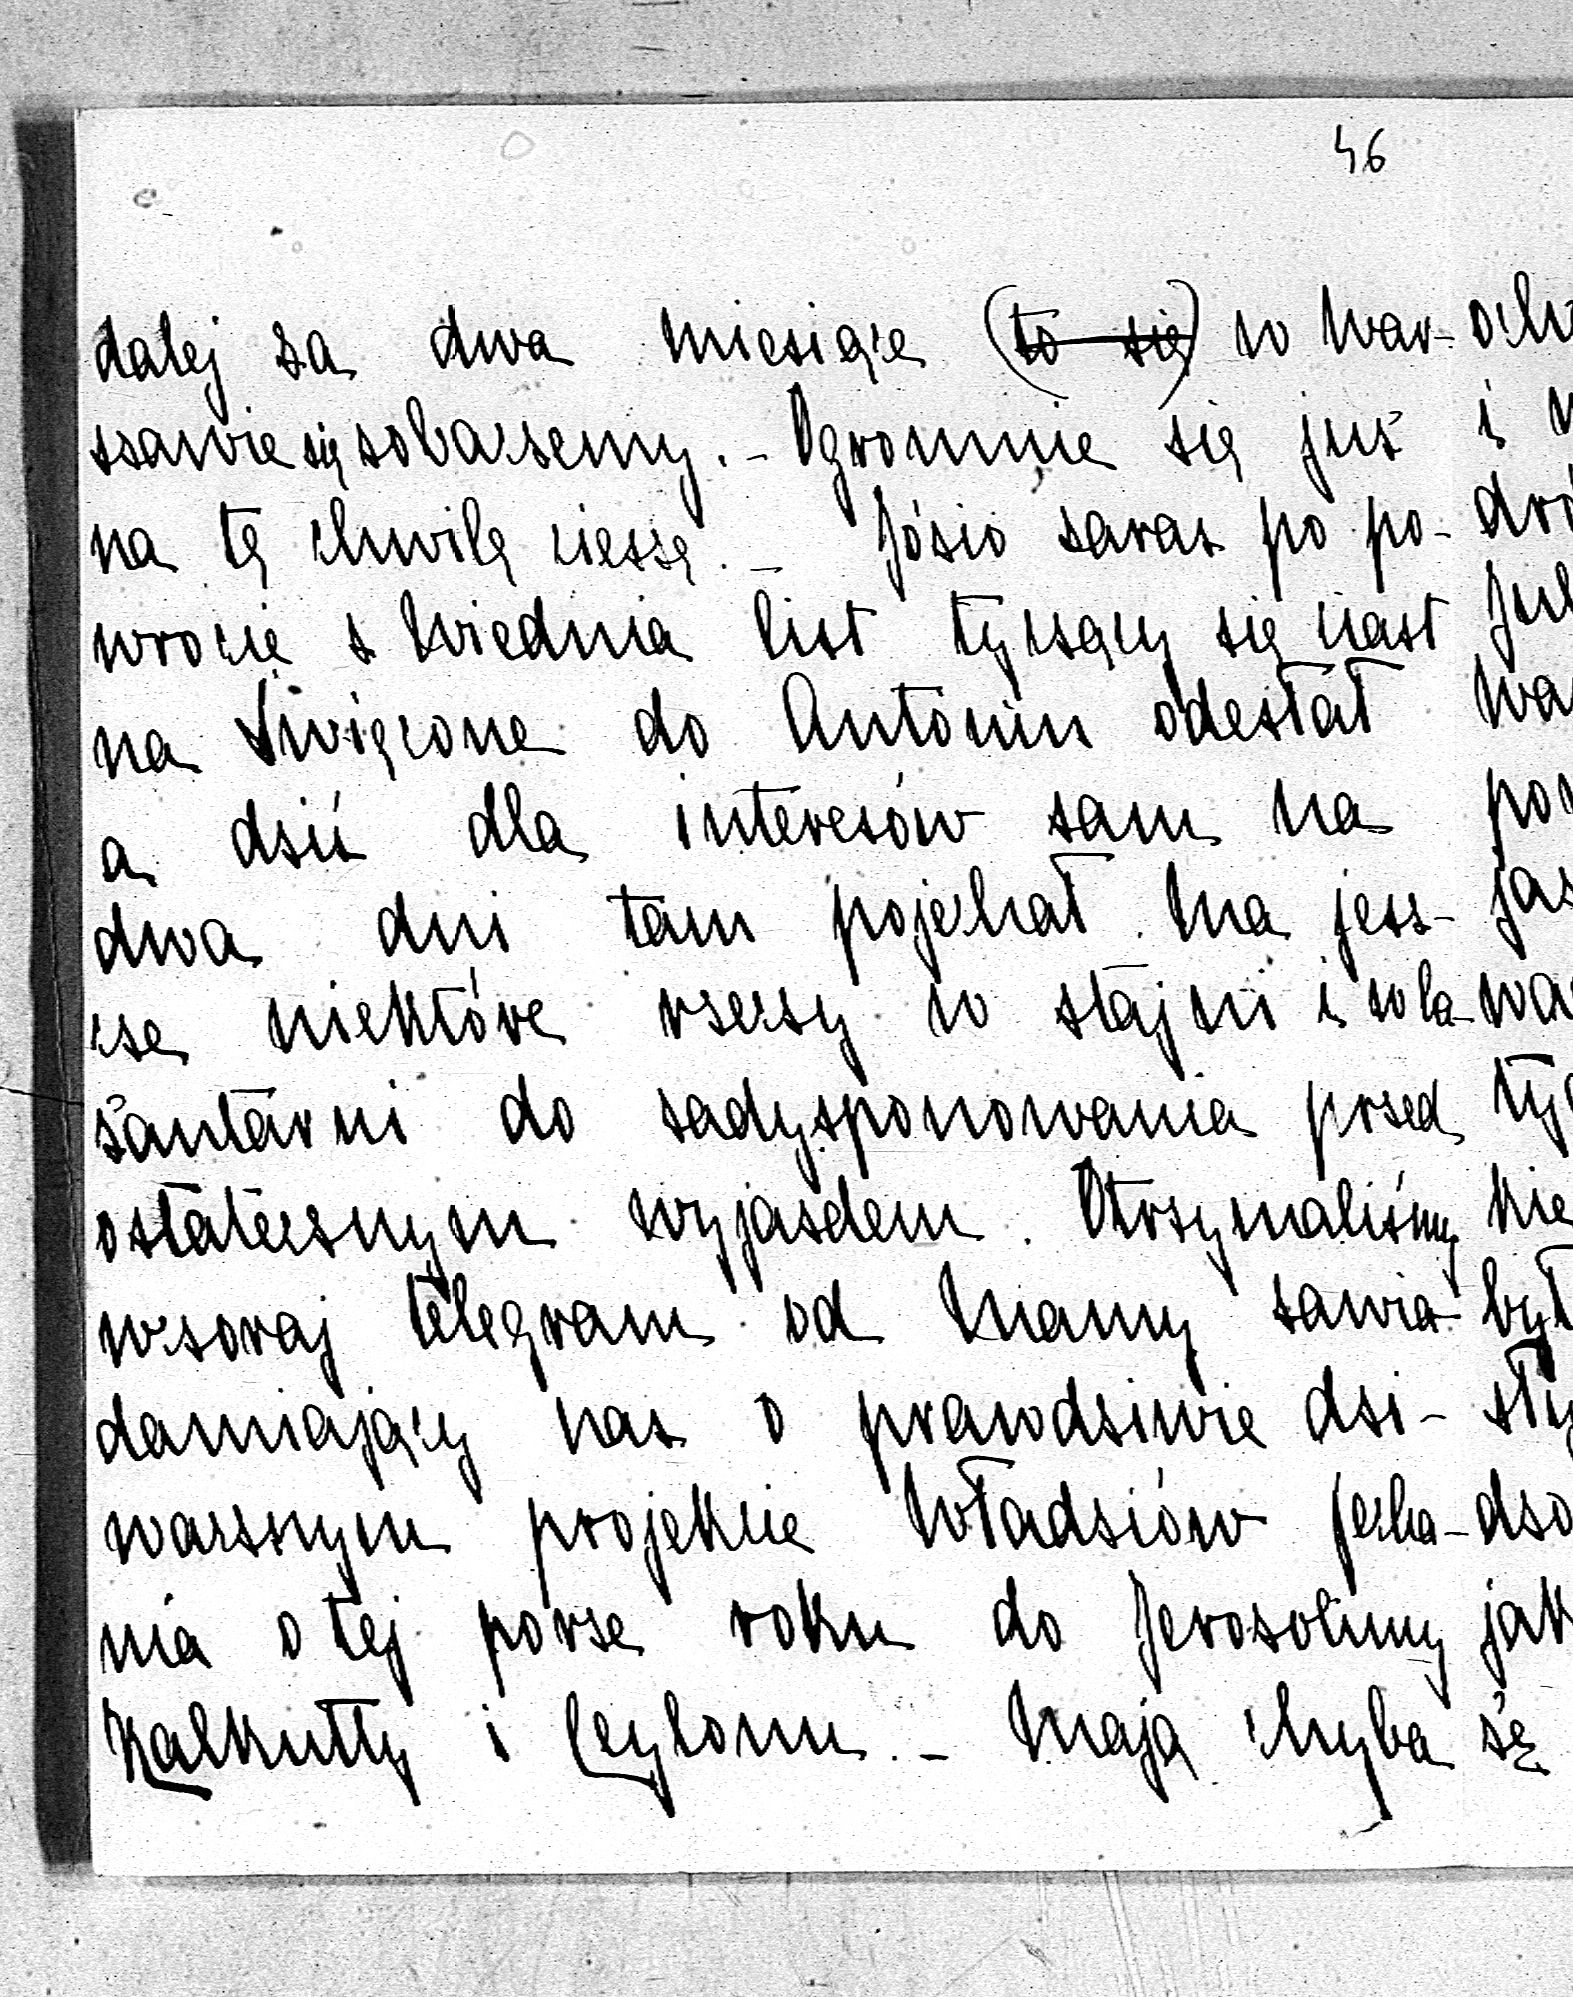 46
dalej za dwa miesiące (to się) w War-
szawie się zobaczemy. - Ogromnie się już
na tę chwilę cieszę. - Józio zaraz po po-
wrocie z Wiednia list tyczący się ciast
na Święcone do Antonin odesłał
a dziś dla interesów sam na
dwa dni tam pojechał. Ma jesz-
cze niektóre rzeczy w stajni i w ba-
żantarni do zadysponowania przed
ostatecznym wyjazdem. Otrzymaliśmy
wczoraj telegram od Mamy zawia-
damiający nas o prawdziwie dzi-
wacznym projekcie Władziów jecha-
nia o tej porze roku do Jerosolimy
Kalkutty i Ceylonu. - Mają chyba